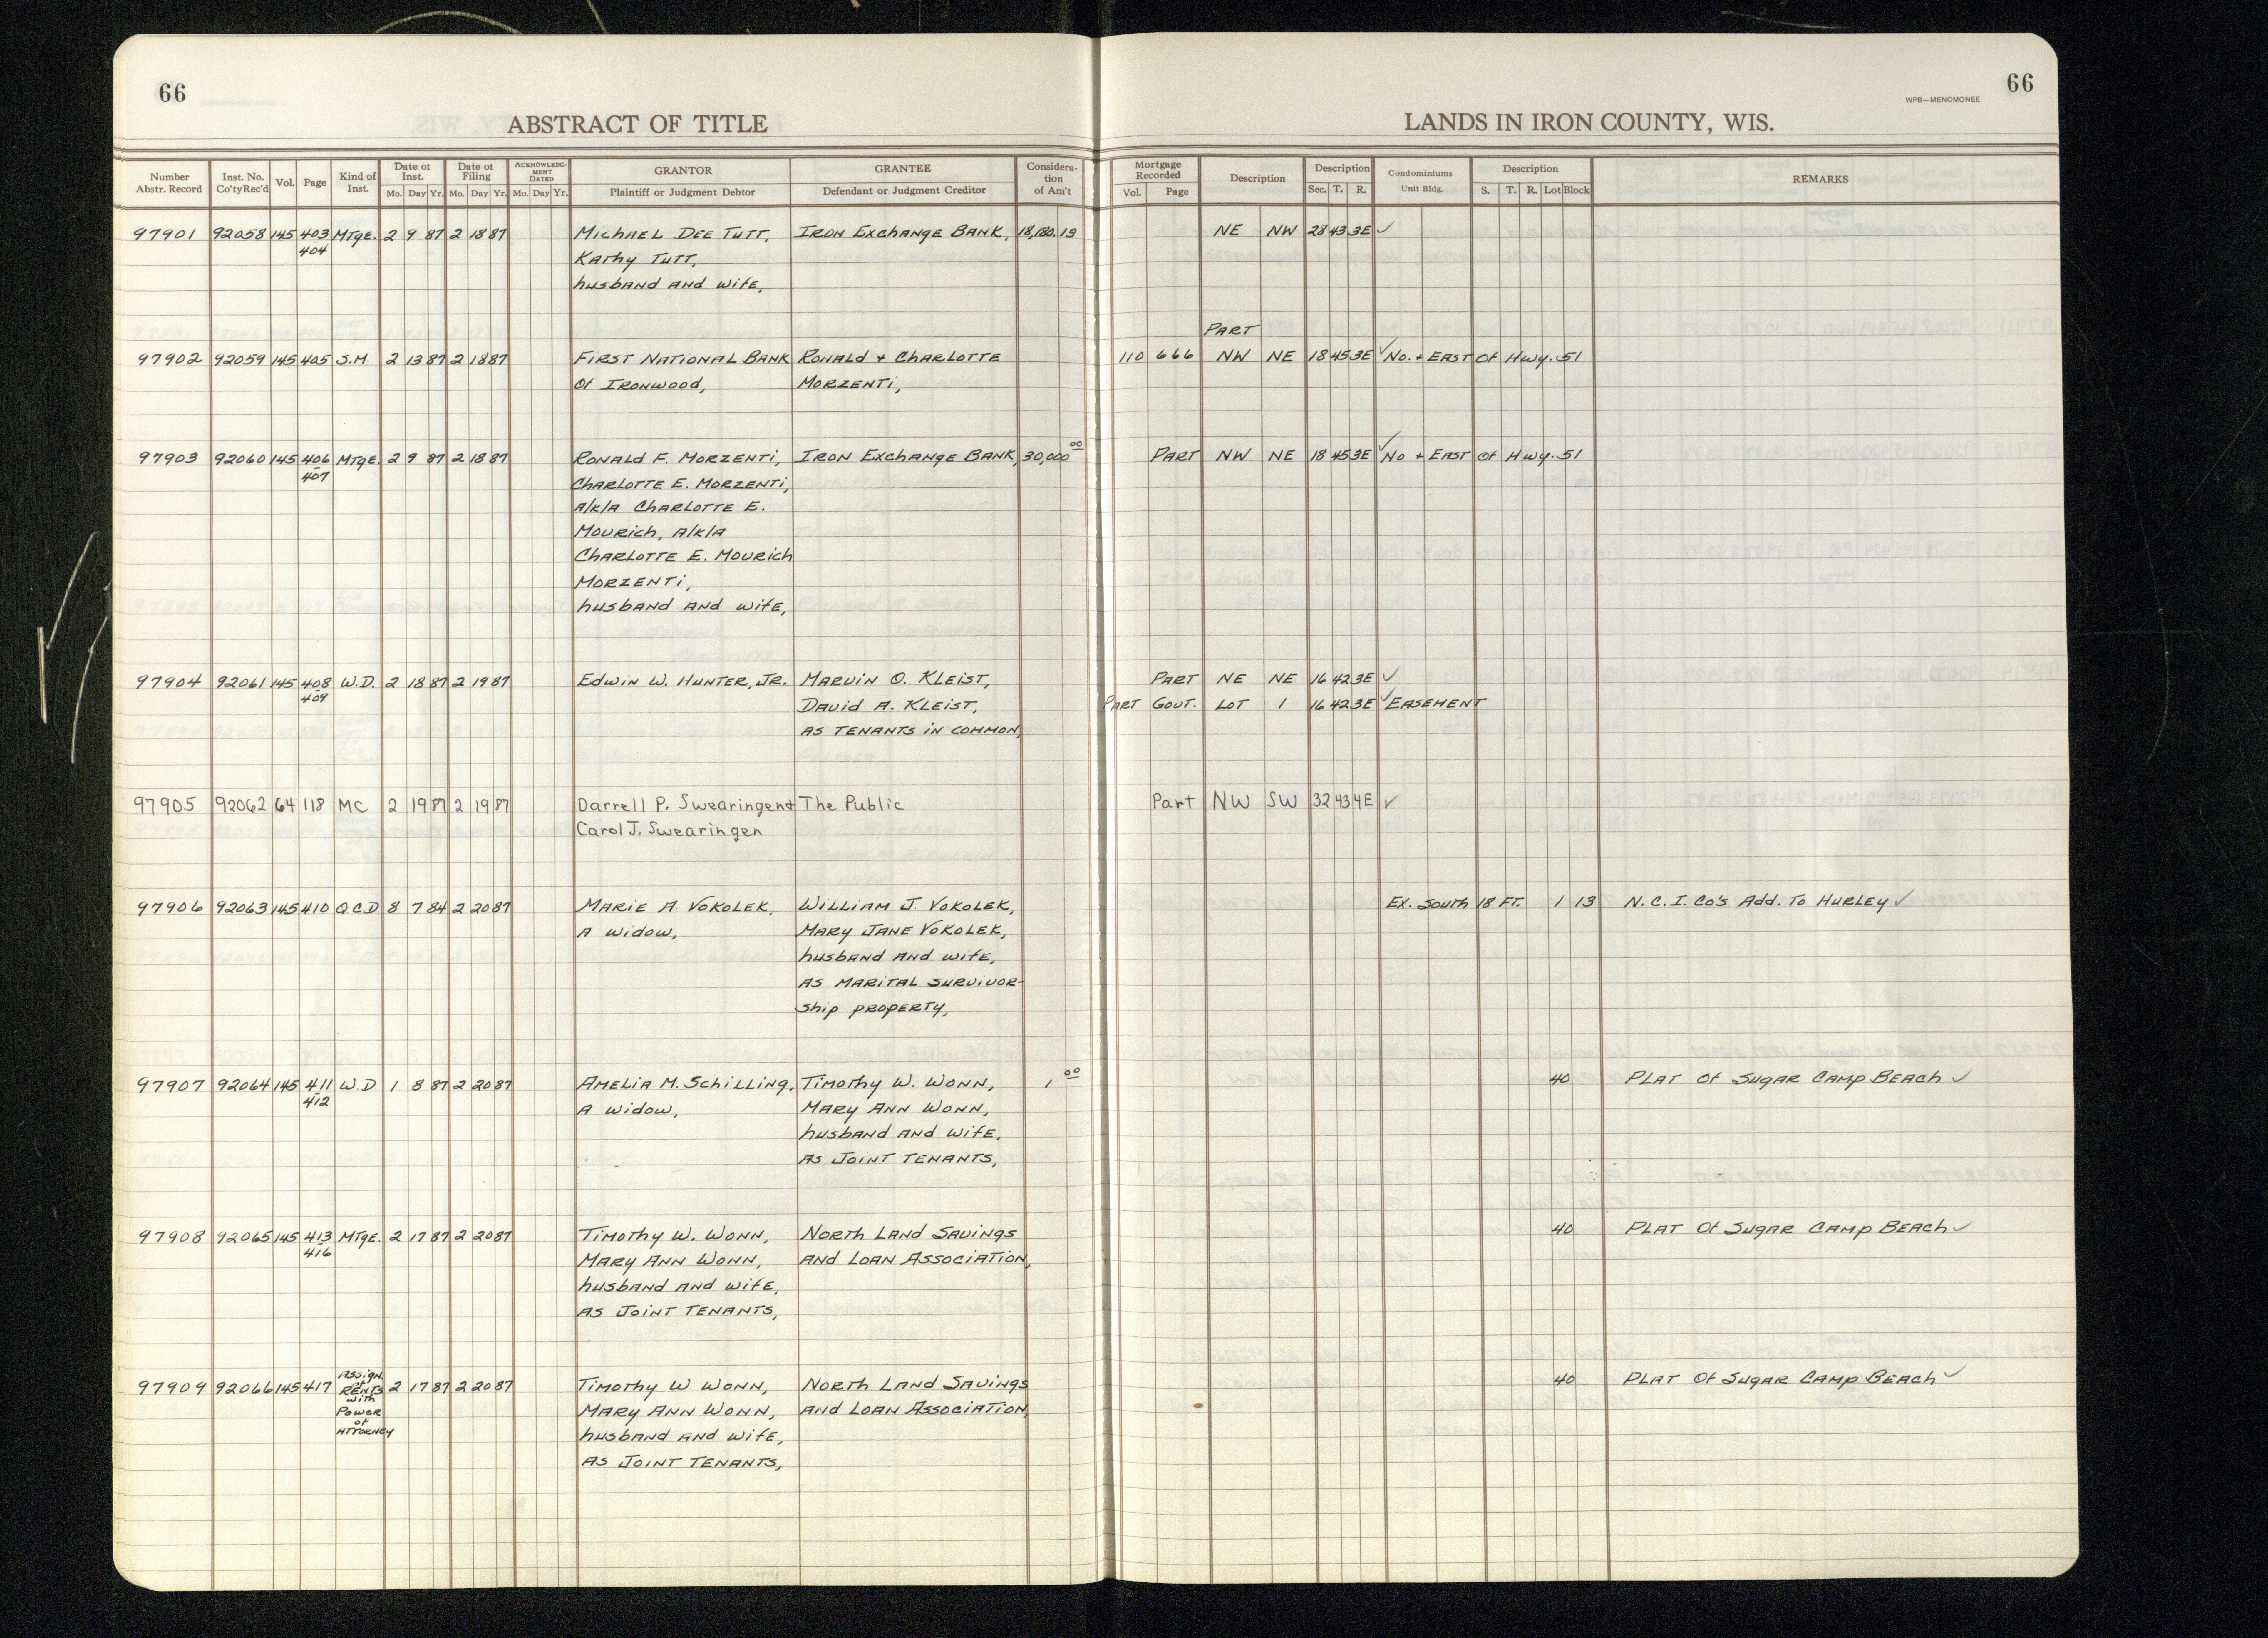 66
66
WPB—MENOMONEE
ABSTRACT OF TITLE
LANDS IN IRON COUNTY, WIS.
Number Abstr. Record | Inst. No. Co'ty Rec'd | Vol. | Page | Kind of Inst. | Date of Inst. Mo. Day Yr. | Date of Filing Mo. Day Yr. | ACKNOWLEDGMENT DATED Mo. Day Yr. | GRANTOR Plaintiff or Judgment Debtor | GRANTEE Defendant or Judgment Creditor | Consideration of Am't | Mortgage Recorded Vol. Page | Description | Description Sec. T. R. | Condominiums Unit Bldg. | Description S. T. R. Lot Block | REMARKS
97901 92058 145 403 MTgE. 2 9 87 2 18 87 Michael Dee Tutt, Iron Exchange Bank, 18,180.13 NE NW 28 43 3E ✓
404 Kathy Tutt,
husband and wife,
Part
97902 92059 145 405 S.M 2 13 87 2 18 87 First National Bank Ronald + Charlotte 110 666 NW NE 18 45 3E ✓ No. + East Of Hwy. 51
Of Ironwood, Morzenti,
97903 92060 145 406 MTgE. 2 9 87 2 18 87 Ronald F. Morzenti, Iron Exchange Bank, 30,000 00 Part NW NE 18 45 3E ✓ No + East Of Hwy. 51
407 Charlotte E. Morzenti,
a/k/a Charlotte E.
Mourich, a/k/a
Charlotte E. Mourich
Morzenti,
husband and wife,
97904 92061 145 408 W.D. 2 18 87 2 19 87 Edwin W. Hunter, Jr. Marvin O. Kleist, Part NE NE 16 42 3E ✓
409 David A. Kleist, Part Gout. Lot 1 16 42 3E ✓ Easement
as tenants in common,
97905 92062 64 118 MC 2 19 87 2 19 87 Darrell P. Swearingen + The Public Part NW SW 32 43 4E ✓
Carol J. Swearingen
97906 92063 145 410 Q.C.D 8 7 84 2 20 87 Marie A. Vokolek, William J. Vokolek, Ex. South 18 Ft. 1 13 N.C.I. Co's Add. To Hurley ✓
a widow, Mary Jane Vokolek,
husband and wife,
as marital survivor-
ship property,
97907 92064 145 411 W.D 1 8 87 2 20 87 Amelia M. Schilling, Timothy W. Wonn, 1 00 40 Plat Of Sugar Camp Beach ✓
412 a widow, Mary Ann Wonn,
husband and wife,
as Joint Tenants,
97908 92065 145 413 MTgE. 2 17 87 2 20 87 Timothy W. Wonn, North Land Savings 40 Plat Of Sugar Camp Beach ✓
416 Mary Ann Wonn, and Loan Association,
husband and wife,
as Joint Tenants,
97909 92066 145 417 Assign. of Rents with Power of Attorney 2 17 87 2 20 87 Timothy W Wonn, North Land Savings 40 Plat Of Sugar Camp Beach ✓
Mary Ann Wonn, and Loan Association,
husband and wife,
as Joint Tenants,